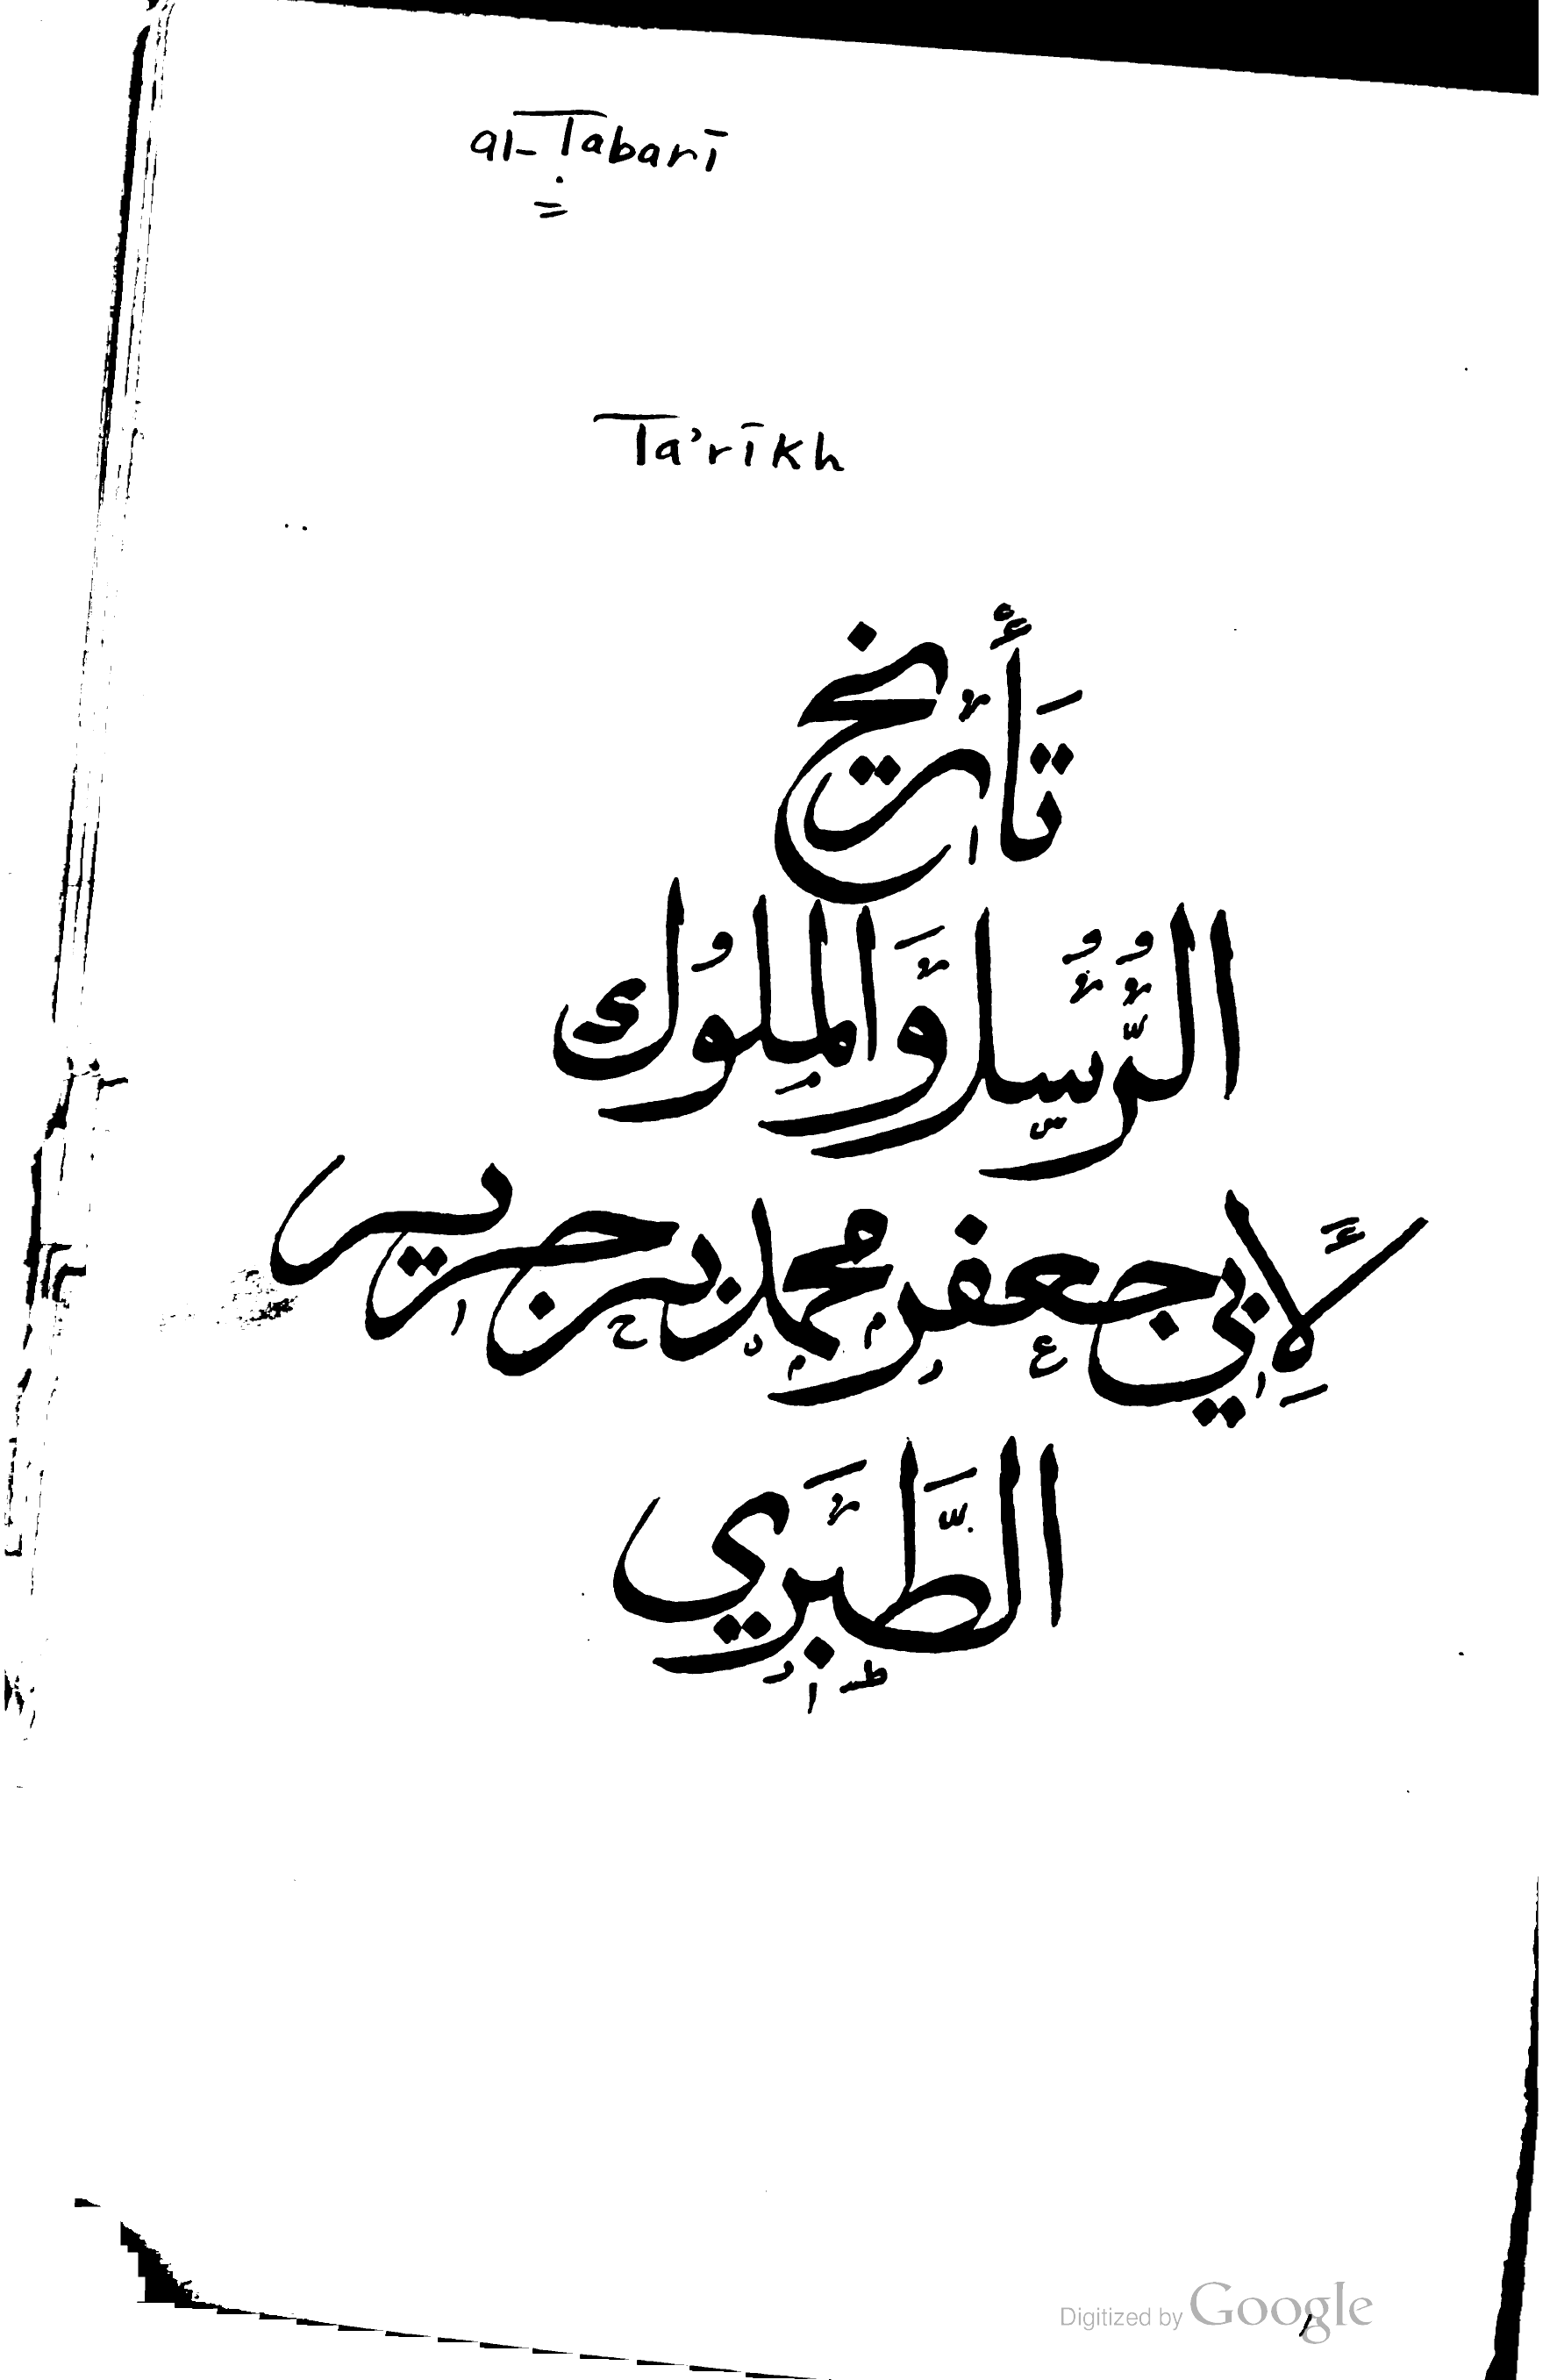 al-Ṭabarī
Ta'rīkh
تَأْرِيخ
الرُّسُل وَالملُوك
لأَبِي جعفر محمد بن جرير
الطَّبَرِي
Digitized by Google